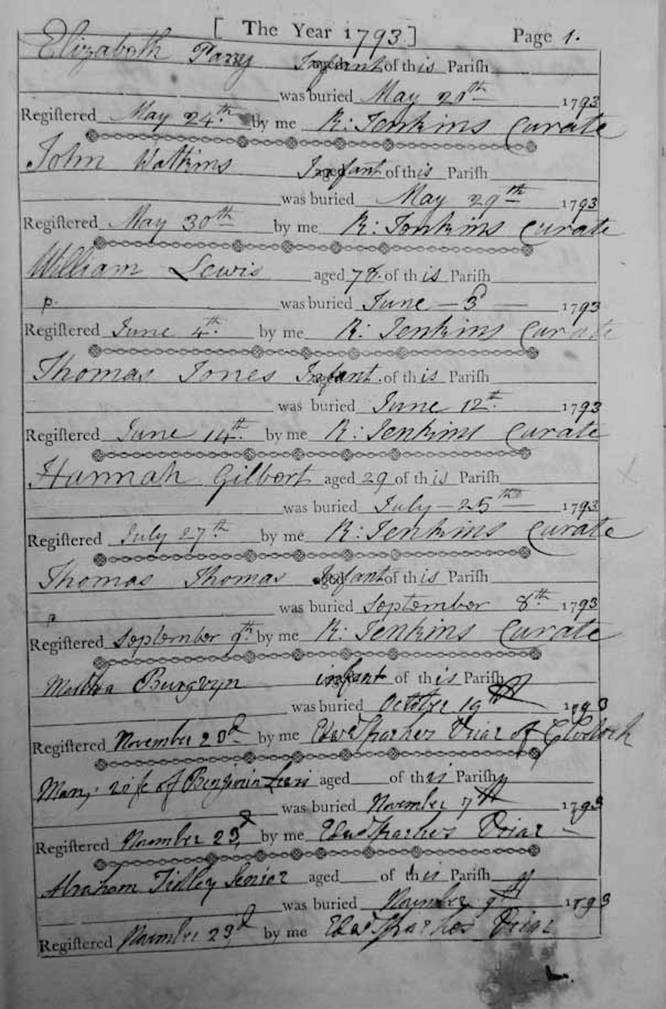 [ The Year 1793.] Page 1.
Elizabeth Parry Infant of this Parish
was buried May 20th 1793
Registered May 24th by me R: Jenkins Curate
John Watkins Infant of this Parish
was buried May 29th 1793
Registered May 30th by me R: Jenkins Curate
William Lewis aged 78 of this Parish
p. was buried June 3d 1793
Registered June 4th by me R: Jenkins Curate
Thomas Jones Infant of this Parish
was buried June 12th 1793
Registered June 14th by me R: Jenkins Curate
Hannah Gilbert aged 29 of this Parish
was buried July 25th 1793
Registered July 27th by me R: Jenkins Curate
Thomas Thomas Infant of this Parish
p was buried September 8th 1793
Registered September 9th by me R: Jenkins Curate
Burgvyn infant of this Parish
was buried October 19th 1793
Registered November 23d by me Edwd Sparkes Vicar of
Mary, wife of Benjamin Lewis aged of this Parish
was buried November 7th 1793
Registered November 23d by me Edwd Sparkes Vicar
Abraham Tidley Senior aged of this Parish
was buried November 9th 1793
Registered November 23d by me Edwd Sparkes Vicar